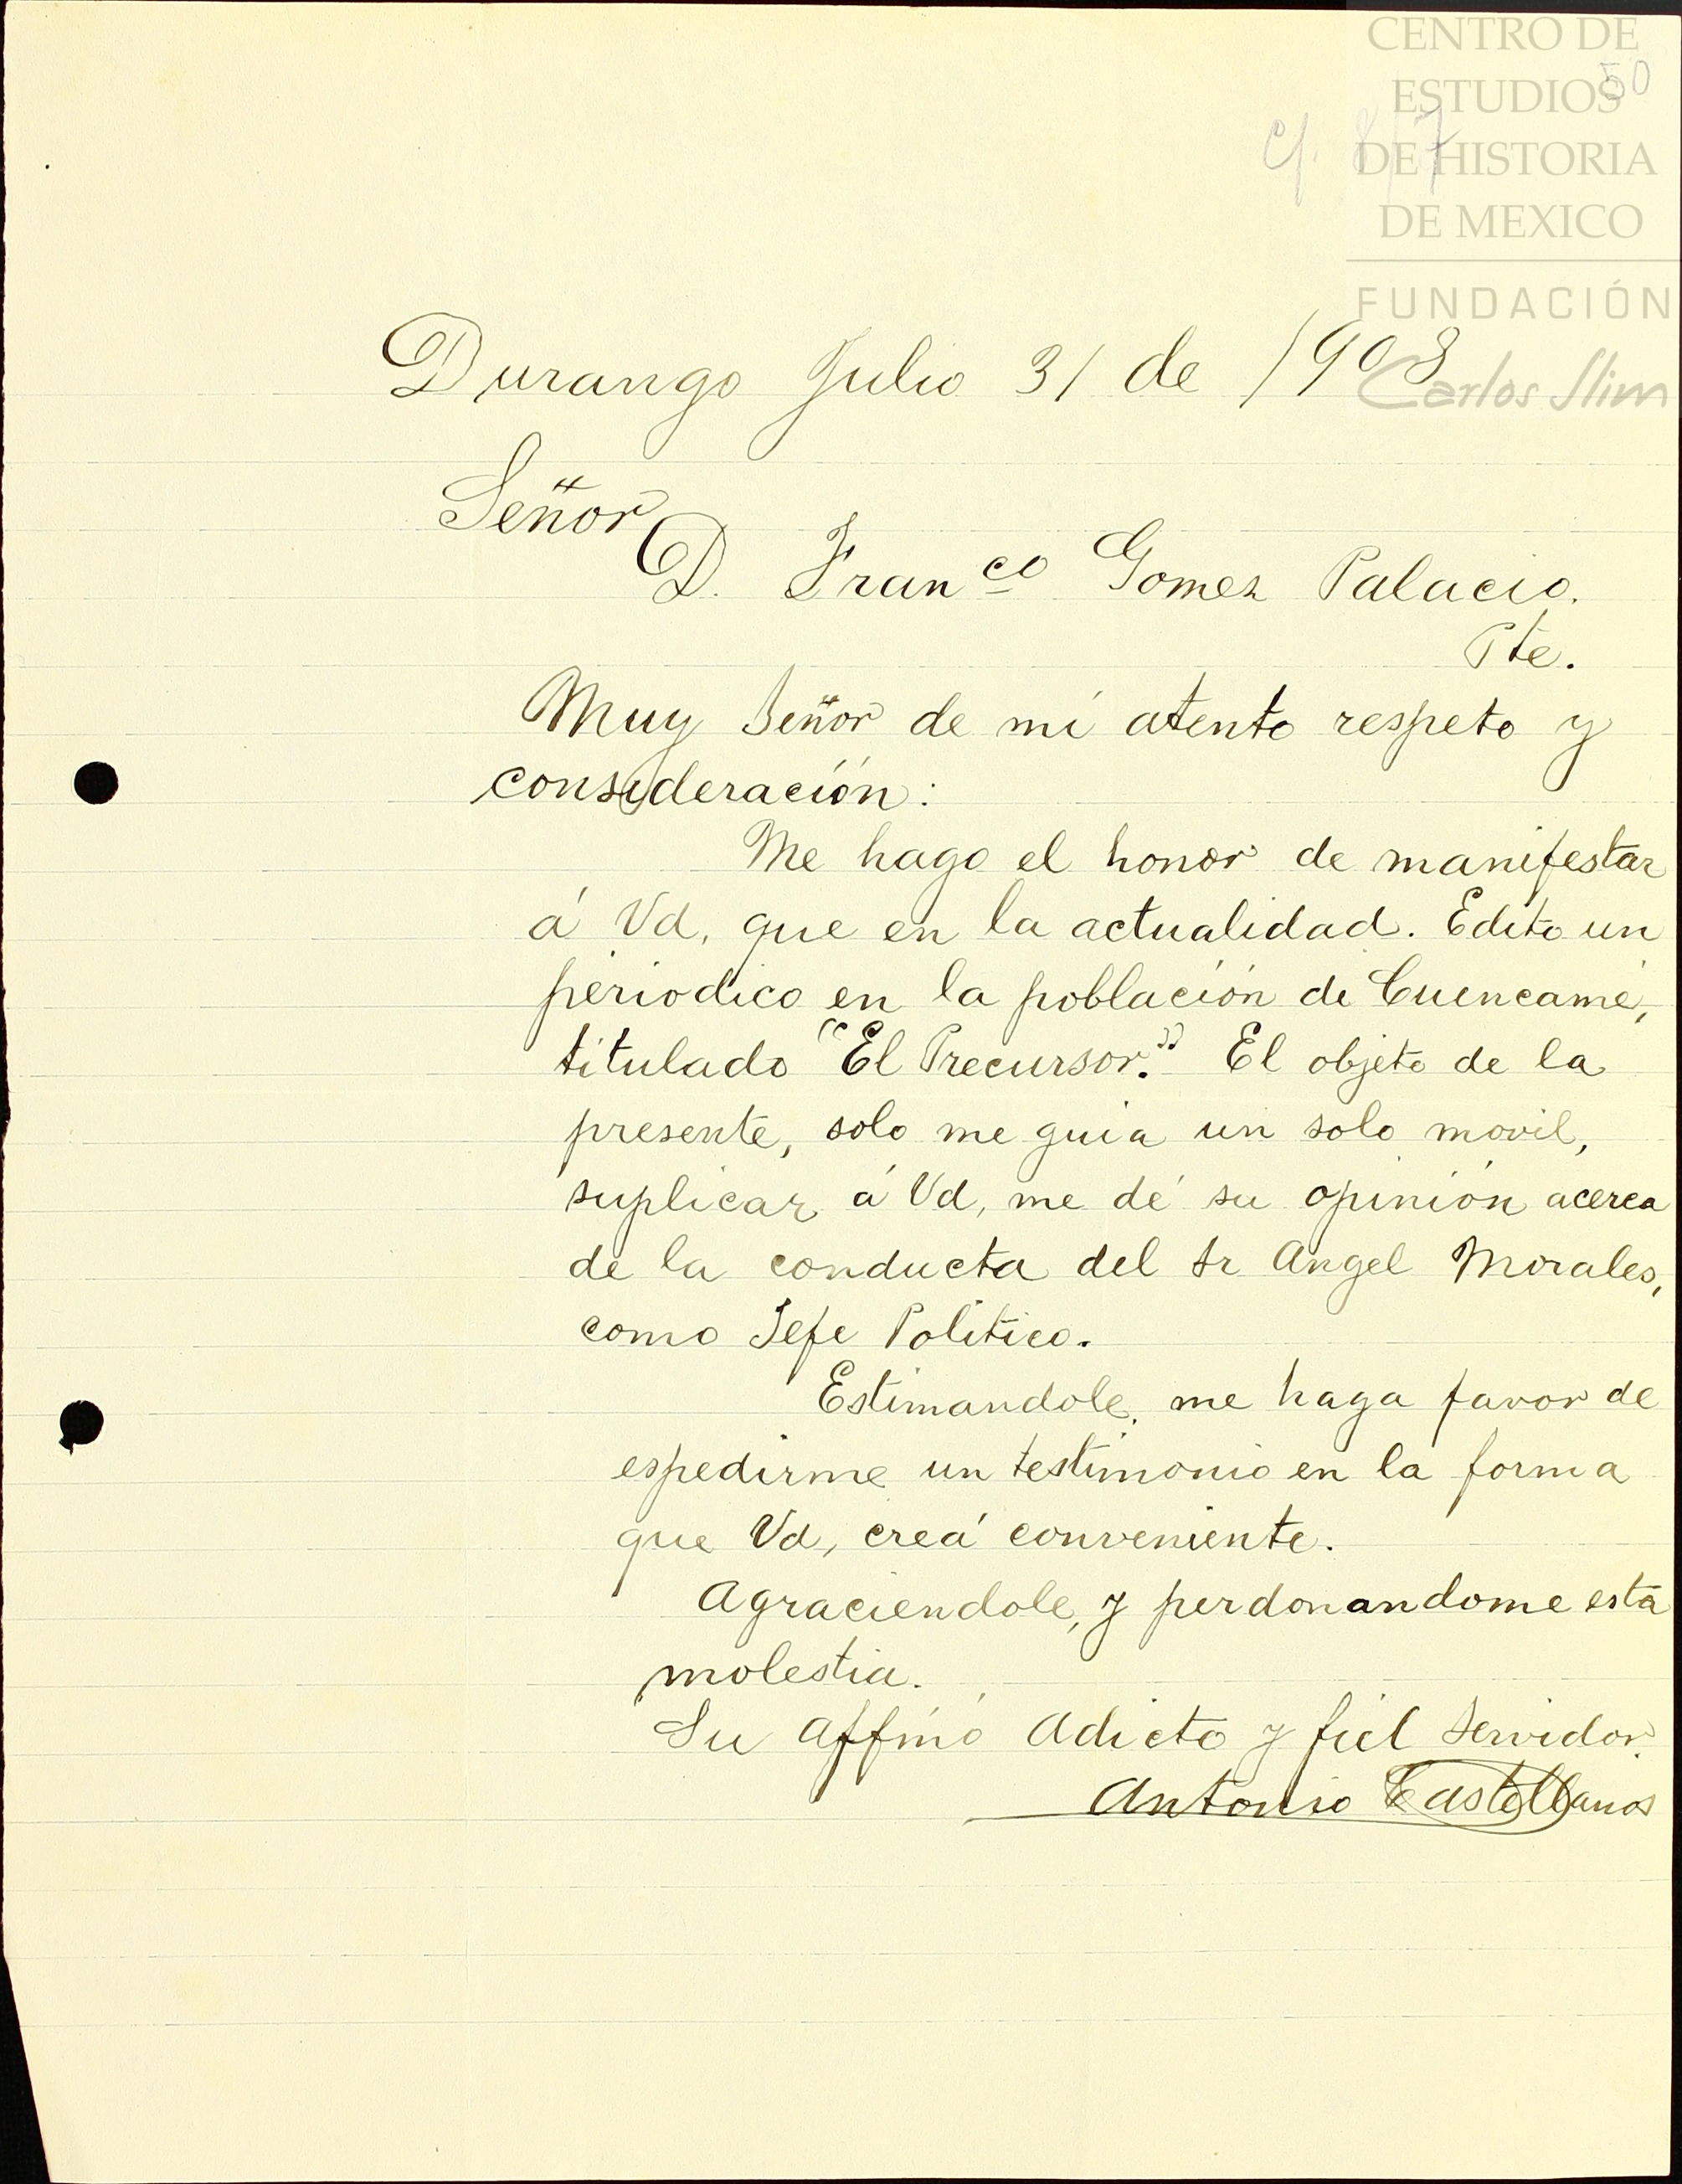 CENTRO DE
ESTUDIOS
50
DE HISTORIA
DE MEXICO
FUNDACIÓN
Carlos Slim
Durango Julio 31 de 1908
Señor
D. Fran<sup>co</sup> Gomez Palacio.
Pte.
Muy Señor de mi atento respeto y
consideración:
Me hago el honor de manifestar
á Vd, que en la actualidad. Edito un
periodico en la población de Cuencamé,
titulado "El Precursor." El objeto de la
presente, solo me guia un solo movil,
suplicar á Vd, me dé su opinión acerca
de la conducta del Sr Angel Morales,
como Jefe Politico.
Estimandole, me haga favor de
espedirme un testimonio en la forma
que Vd, creá conveniente.
Agraciendole, y perdonandome esta
molestia.
Su affmó Adicto y fiel Servidor
Antonio Castellanos